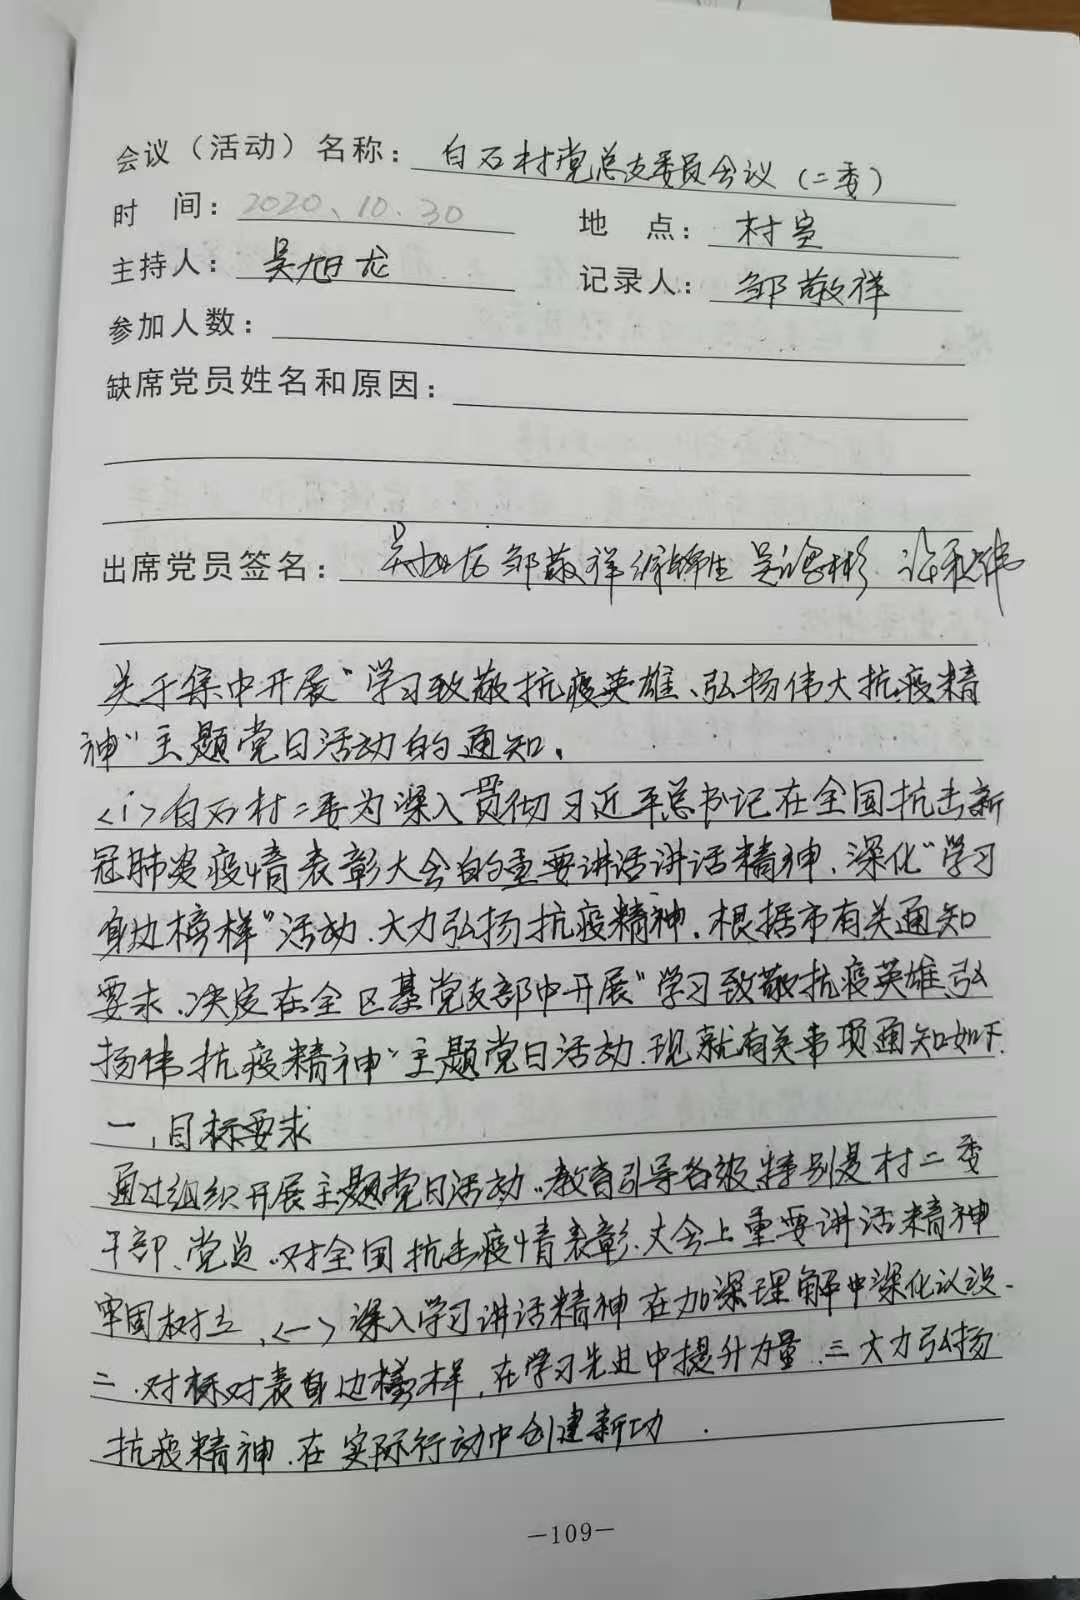 会议（活动）名称：白石村党总支委员会议（二委）
时 间：2020、10.30 地 点：村室
主持人：吴旭龙 记录人：邹敬祥
参加人数：
缺席党员姓名和原因：
出席党员签名：吴旭龙 邹敬祥
关于集中开展“学习致敬抗疫英雄、弘扬伟大抗疫精
神”主题党日活动的通知.
<1>白石村二委为深入贯彻习近平总书记在全国抗击新
冠肺炎疫情表彰大会的重要讲话讲话精神、深化“学习
身边榜样”活动、大力弘扬抗疫精神.根据市有关通知
要求.决定在全区基党支部中开展“学习致敬抗疫英雄、弘
扬伟抗疫精神”主题党日活动.现就有关事项通知如下.
一、目标要求
通过组织开展主题党日活动.教育引导各级特别是村二委
干部、党员.对全国抗击疫情表彰、大会上重要讲话精神
牢固树立、<一>深入学习讲话精神在加深理解中深化认识.
二.对标对表身边榜样,在学习先进中提升力量.三大力弘扬
抗疫精神.在实际行动中创建新功.
—109—